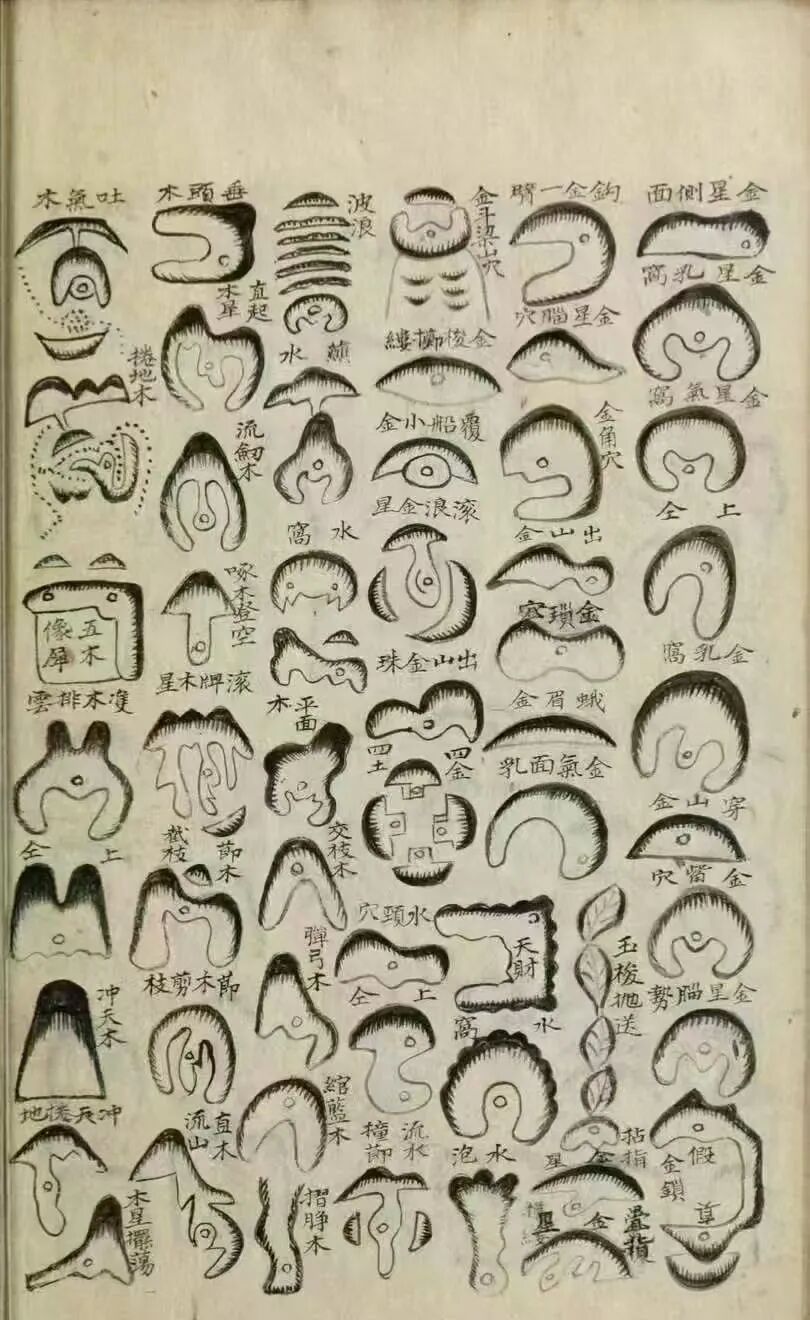 金星側面
金星乳窩
金星氣窩
上仝
金乳窩
穿山金
金當穴
金星腦勢
假
金鎖
鈎金一臂
金星腦穴
金角穴
出山金
金瑣穴
蛾眉金
金氣面乳
天財
玉梭拋送
拈指
金
星
疊指
金
星
金斗梁山穴
金梭擲縷
覆船小金
滾浪金星
出山金珠
四金
四土
水頸穴
上仝
水窩
水泡
波浪
水
水窩
平面木
交枝木
彈弓木
綰藍木
流水
撞節
摺脖木
垂頭木
直起木星
流劒木
啄木登空
滾牌木星
節木
截枝
節木剪枝
直木
流山
吐氣木
捲地木
五木
像犀
雙木排雲
上仝
冲天木
冲天捲地
木星擺蕩